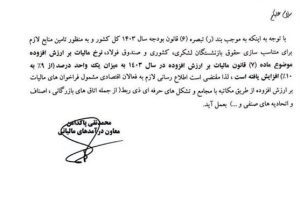 با توجه به اینکه به موجب بند (ر) تبصره (۶) قانون بودجه سال ۱۴۰۳ کل کشور و به منظور تامین منابع لازم
برای متناسب سازی حقوق بازنشستگان لشکری، کشوری و صندوق فولاد، نرخ مالیات بر ارزش افزوده
موضوع ماده (۷) قانون مالیات بر ارزش افزوده در سال ۱۴۰۳ به میزان یک واحد درصد (از ۹٪ به
۱۰٪) افزایش یافته است، لذا مقتضی است اطلاع رسانی لازم به فعالان اقتصادی مشمول فراخوان های مالیات
بر ارزش افزوده از طریق مکاتبه با مجامع و تشکل های حرفه ای ذی ربط (از جمله اتاق های بازرگانی، اصناف
و اتحادیه های صنفی و ...) بعمل آید.
محمدتقی پاکدامن
معاون درآمدهای مالیاتی